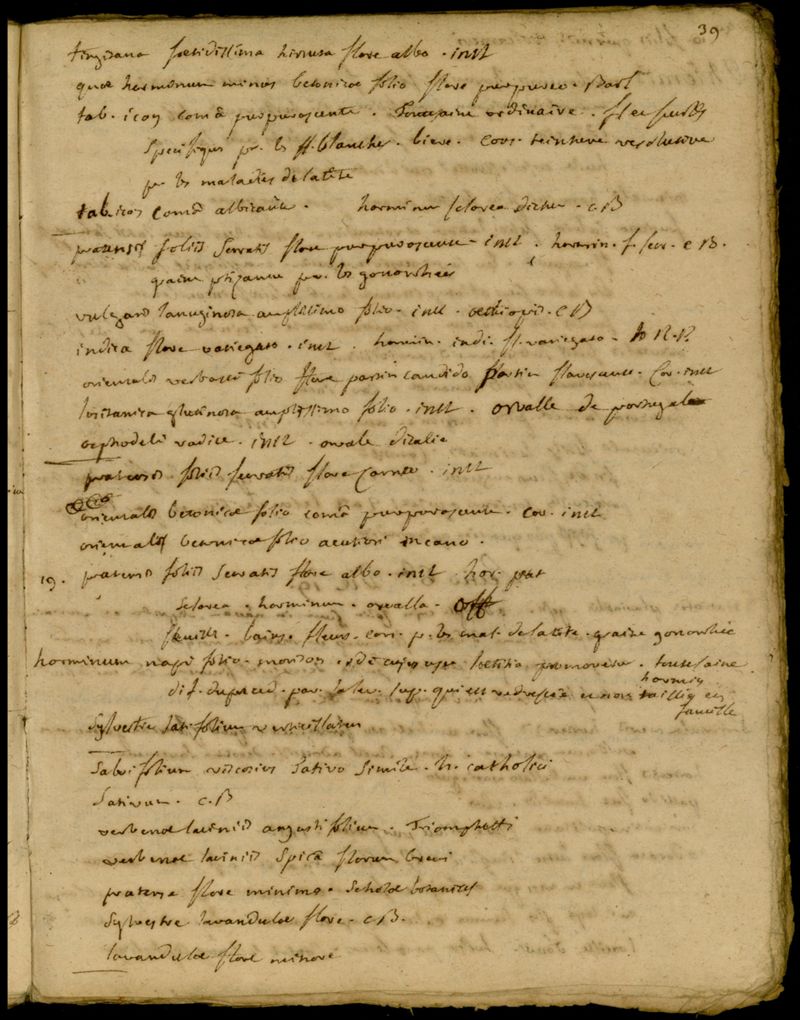 39
tingitana foetidissima hirsuta flore albo. inst
quae horminum minus betonicae folio flore purpureo. Barl
tab. icon comâ purpurascente. Toutsaine ordinaire. fl et feuilles
specifique pr. les ff. blanches. biere. cons. teinture resolutive
pr les maladies de la tête
tab. icon comâ albicante. horminum sclarea dictum. c.B
pratensis foliis serratis flore purpurascente. inst. hormin. f. serr. c B.
graine ptizanne pr. les gonorrhées
vulgaris lanuginosa amplissimo folio. inst. aethiopis. c B
indica flore variegato. inst. hormin. indi. fl. variegato. H R. P.
orientalis verbasci folio flore partim candido partim flavescente. Cor. inst
lusitanica glutinosa amplissimo folio. inst. orvalle de portugal
asphodeli radice. inst. orvale d'italie
pratensis foliis serratis flore carneo. inst
orientalis betonicae folio comâ purpurascente. cor. inst
orientalis betonicae folio acutiori incano.
19. pratensis foliis serratis flore albo. inst hor. prat
sclarea. horminum. orvalla. off
feuilles. bains. fleurs. con. p. les mal. de la tete. graine gonorrhée
horminum napi folio. morison. de cujus usu laetitia promovetur. toutesaine
dif. du preced. par. la lev. sup. qui est redressée et non taillée en
hormin
faucille
sylvestre latifolium verticillatum
salvifolium viscosius sativo simile. h. catholici
sativum. c.B
verbenae laciniis angustifolium. Triomphetti
verbenae laciniis spicâ florum brevi
pratense flore minimo. scholae botanices
sylvestre lavandulae flore. c B.
lavandulae flore minore